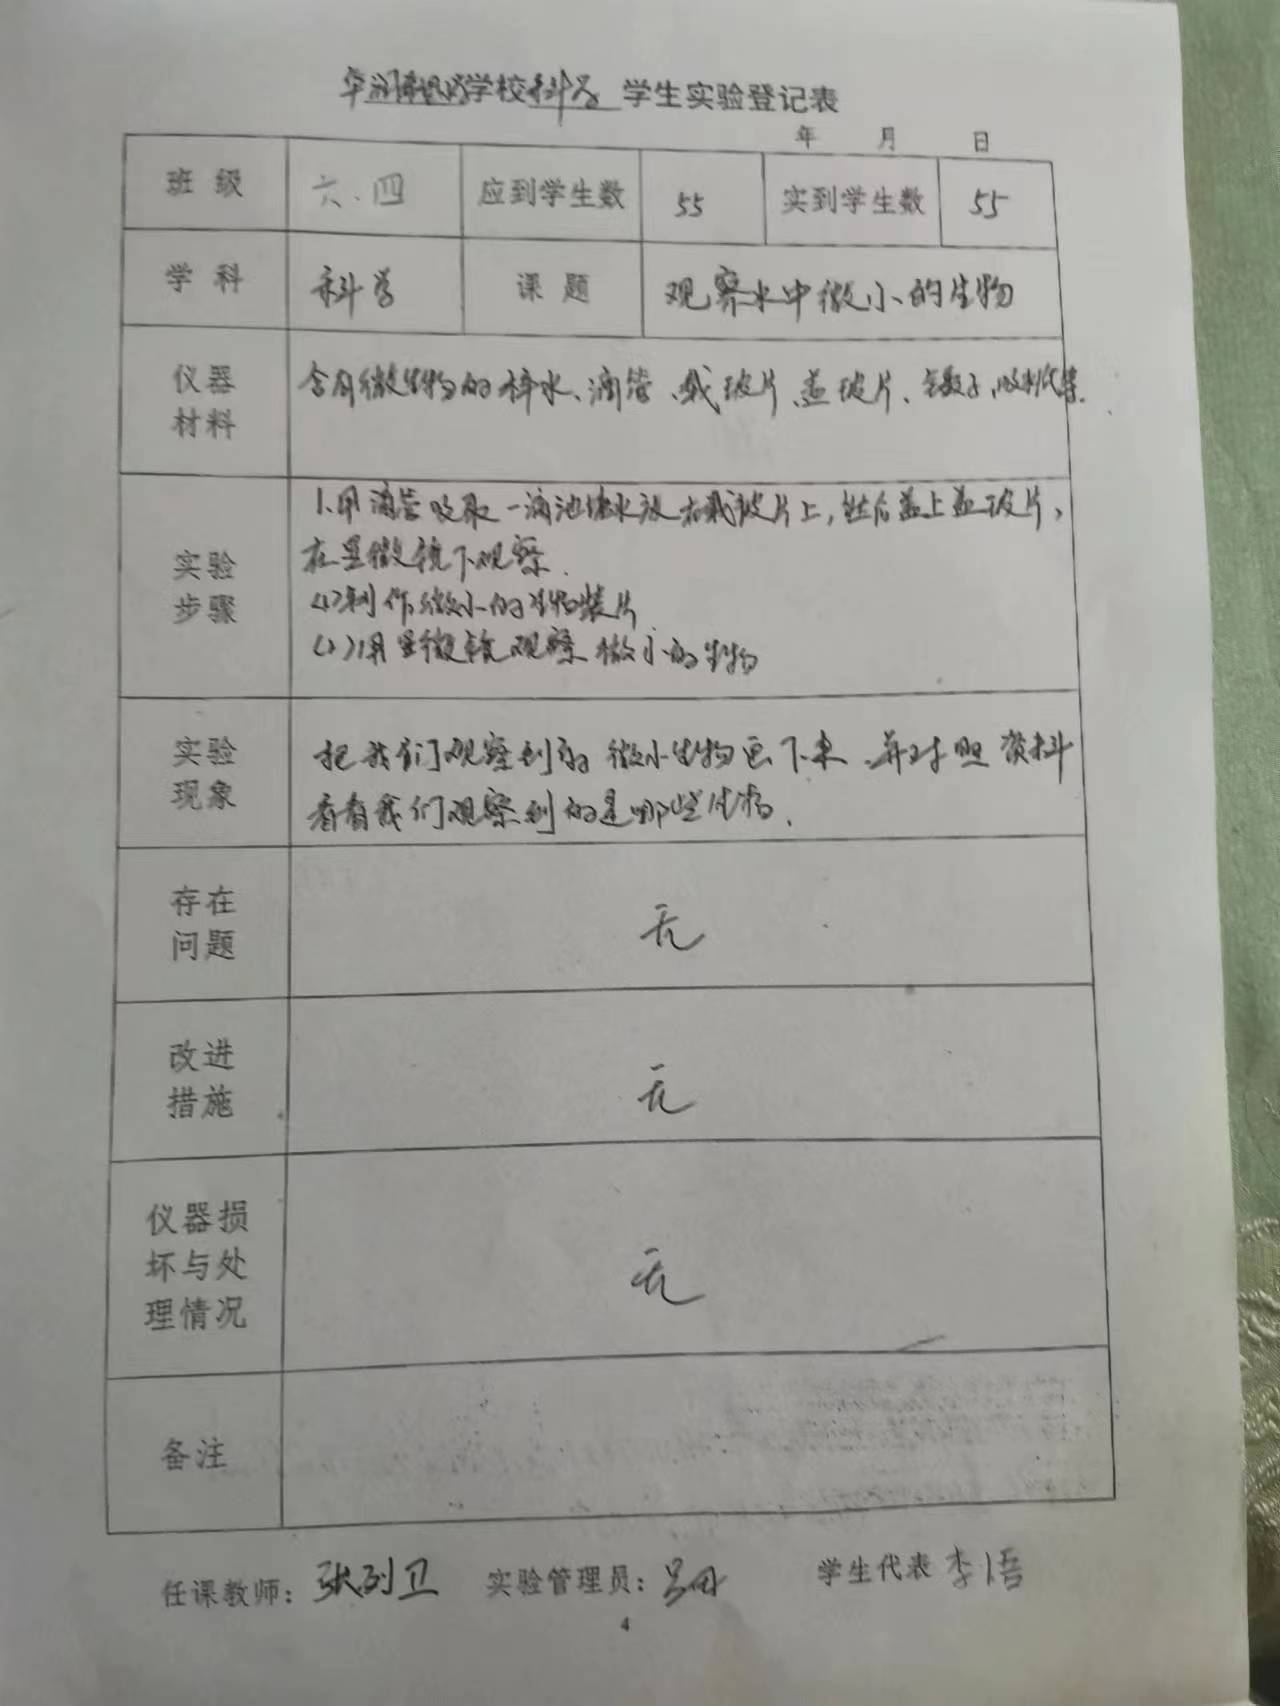 华润希望学校科学 学生实验登记表
年 月 日
班 级 六.四 应到学生数 55 实到学生数 55
学 科 科学 课 题 观察水中微小的生物
仪器
材料
含有微生物的样水、滴管、载玻片、盖玻片、镊子、吸水纸等.
实验
步骤
1.用滴管吸取一滴池塘水放在载玻片上,然后盖上盖玻片,
在显微镜下观察.
(1)制作微小的生物装片
(2)用显微镜观察微小的生物
实验
现象
把我们观察到的微小生物画下来.并对照资料
看看我们观察到的是哪些生物.
存在
问题
无
改进
措施
无
仪器损
坏与处
理情况
无
备注
任课教师: 张列卫 实验管理员: 学生代表 李悟
4